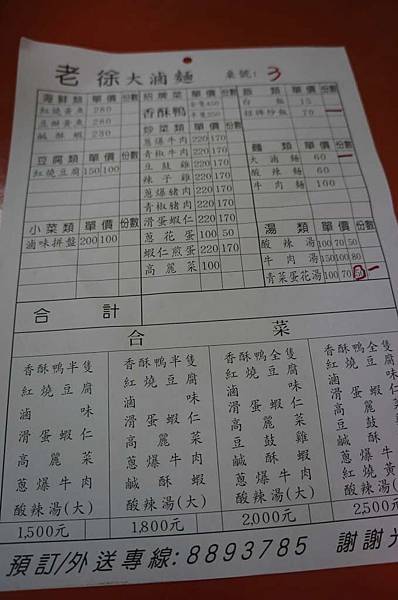 老徐大滷麵 桌號: 3
海鮮類 單價 份數
紅燒黃魚 280
豆酥黃魚 280
鹹酥蝦 230
豆腐類 單價 份數
紅燒豆腐 150 100
小菜類 單價 份數
滷味拼盤 200 100
招牌菜 單價 份數
香酥鴨 全隻450 半隻250
炒菜類 單價 份數
蔥爆牛肉 220 170
青椒牛肉 220 170
豆豉雞 220 170
辣子雞 220 170
蔥爆豬肉 220 170
青椒豬肉 220 170
滑蛋蝦仁 220 170
蔥花蛋 100 50
蝦仁煎蛋 220 170
高麗菜 100
飯類 單價 份數
白飯 15
招牌炒飯 70
麵類 單價 份數
大滷麵 60
酸辣麵 60
牛肉麵 160
湯類 單價 份數
酸辣湯 100 70 50
牛肉湯 150 100 80
青菜蛋花湯 100 70 50
合計
合菜
香酥鴨半隻
紅燒豆腐
滷味
滑蛋蝦仁
高麗菜
蔥爆牛肉
酸辣湯(大)
1,500元
香酥鴨半隻
紅燒豆腐
滷味
滑蛋蝦仁
高麗菜
蔥爆牛肉
鹹酥蝦
酸辣湯(大)
1,800元
香酥鴨全隻
紅燒豆腐
滷味
滑蛋蝦仁
高麗菜
豆豉雞
鹹酥蝦
蔥爆牛肉
酸辣湯(大)
2,000元
香酥鴨全隻
紅燒豆腐
滷味
滑蛋蝦
高麗菜
豆豉
鹹酥
蔥爆牛
紅燒黃
酸辣湯(
2,500元
預訂/外送專線:8893785 謝謝光